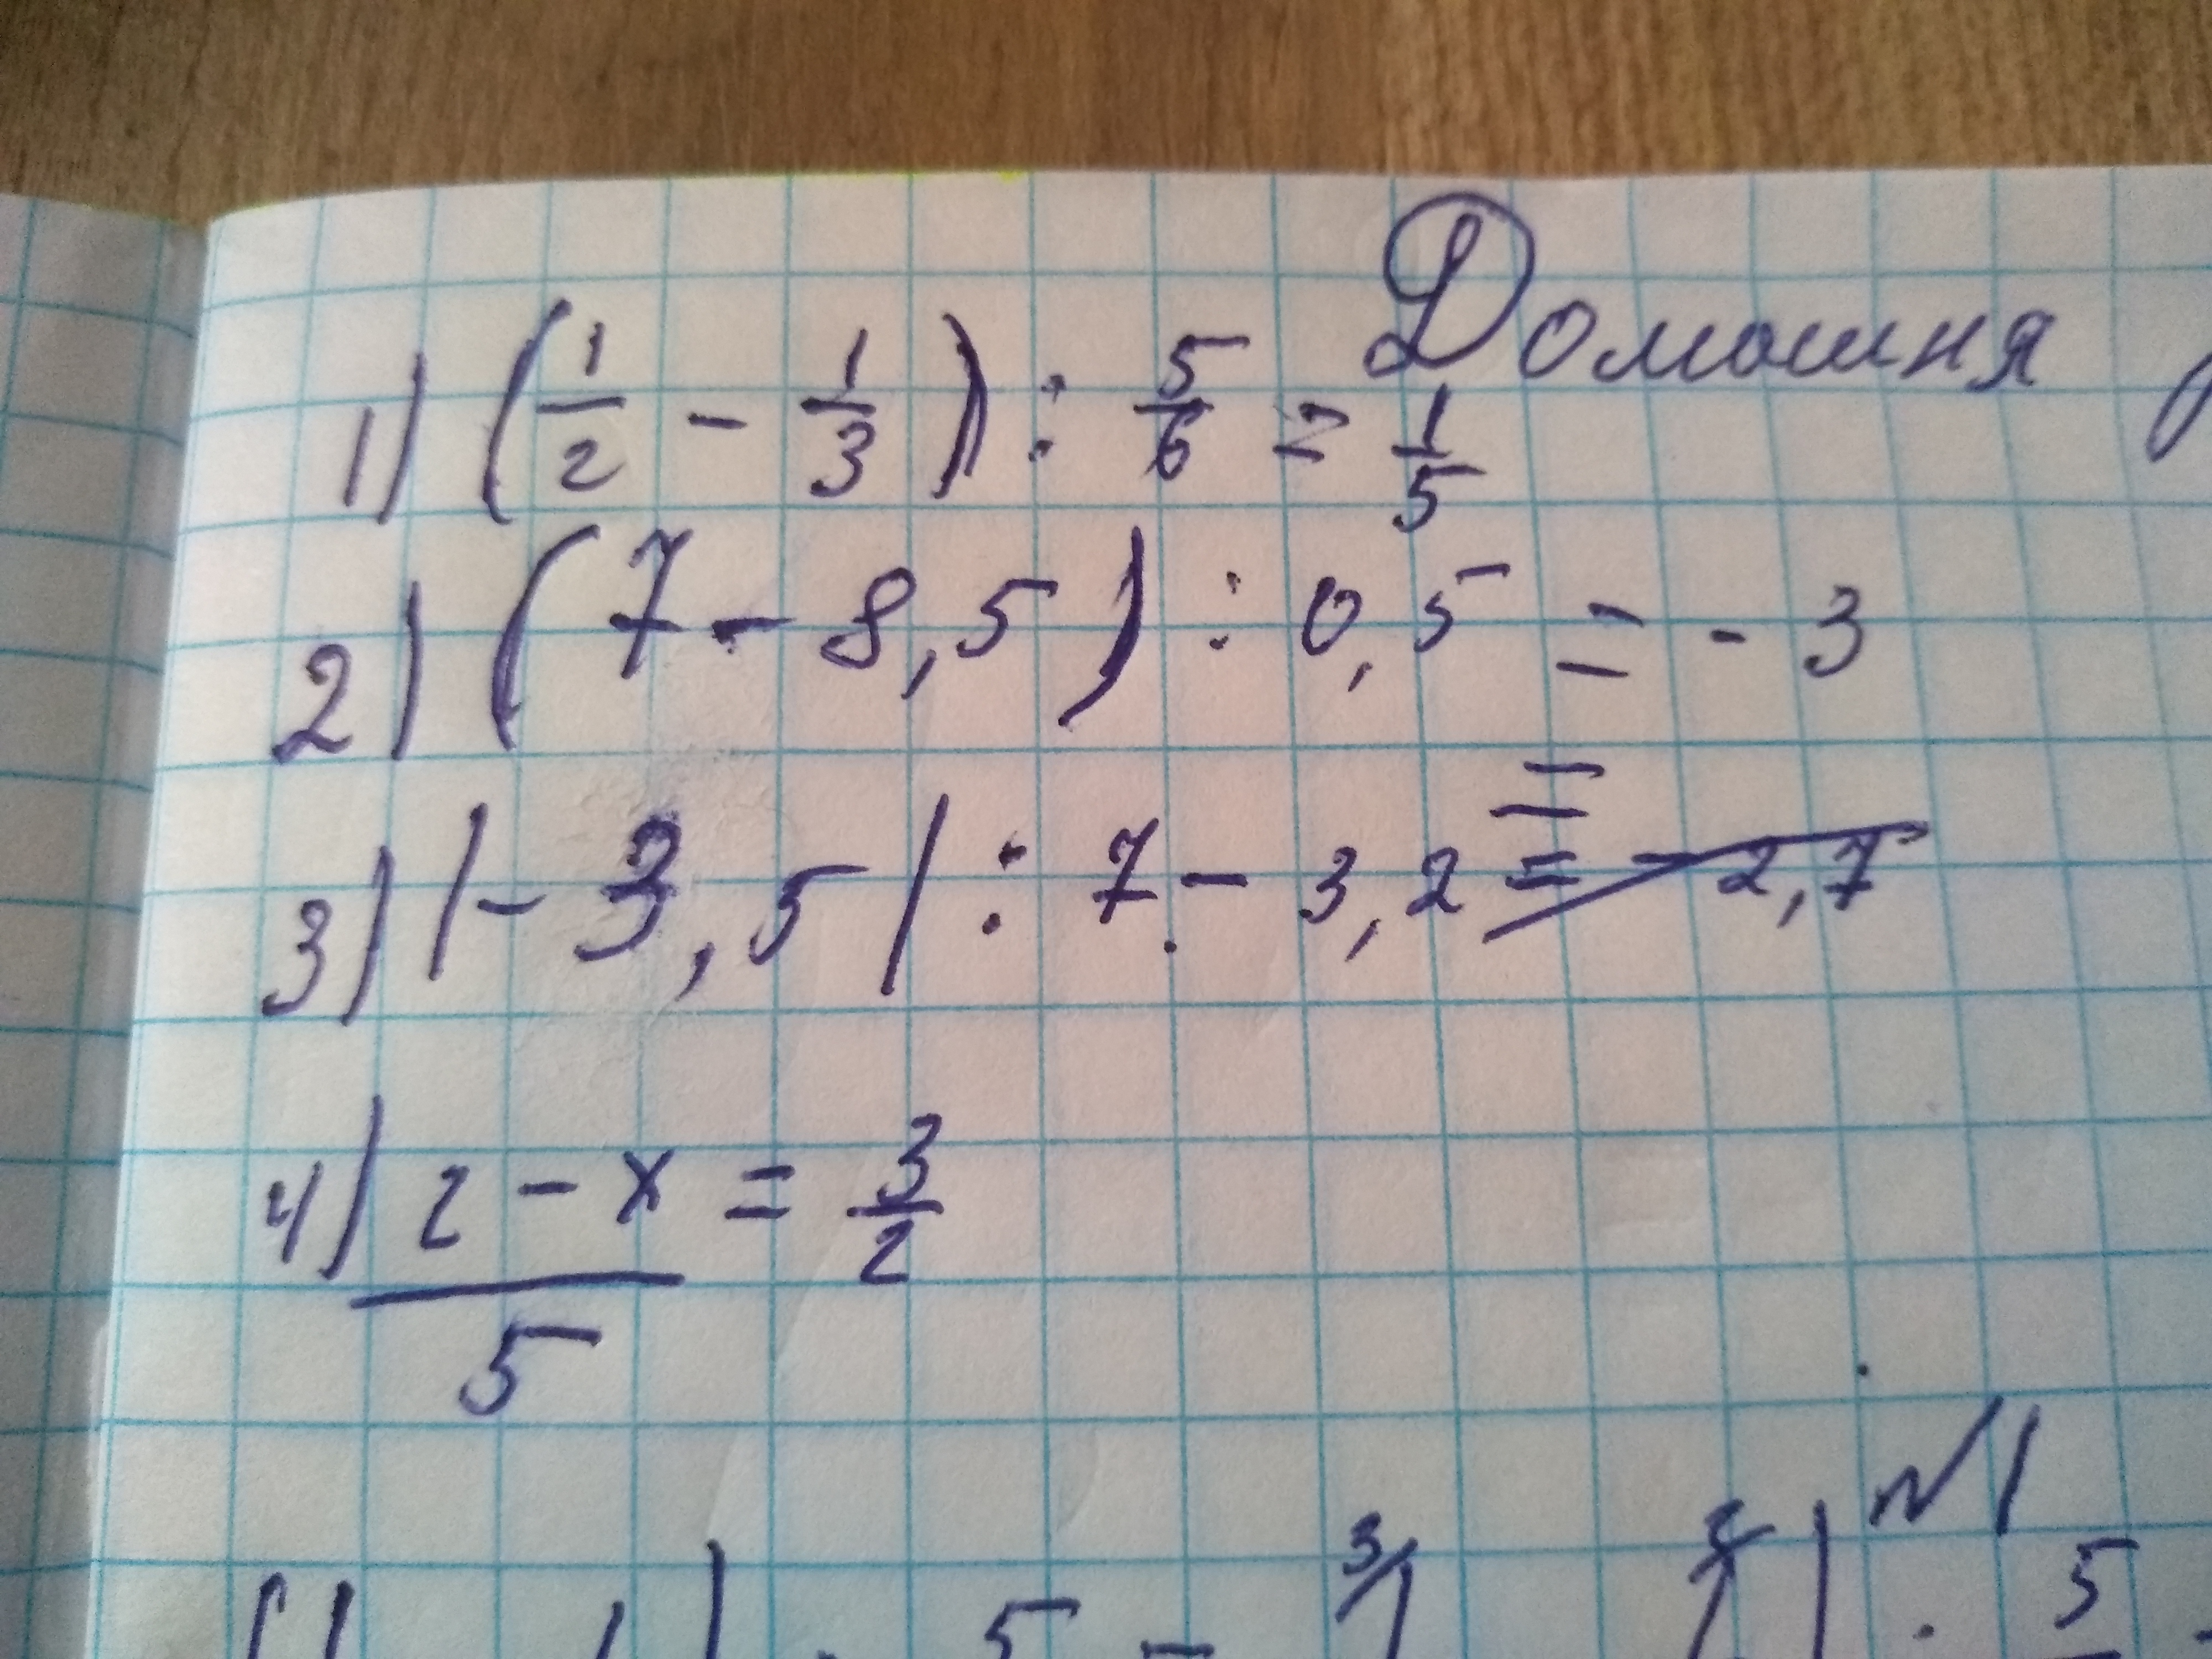 Домашня
1) (1/2 - 1/3) : 5/6 = 1/5
2) (7 - 8,5) : 0,5 = - 3
=
3) |- 3,5| : 7 - 3,2 = - 2,7
4) 2 - x = 3/2
5
№1